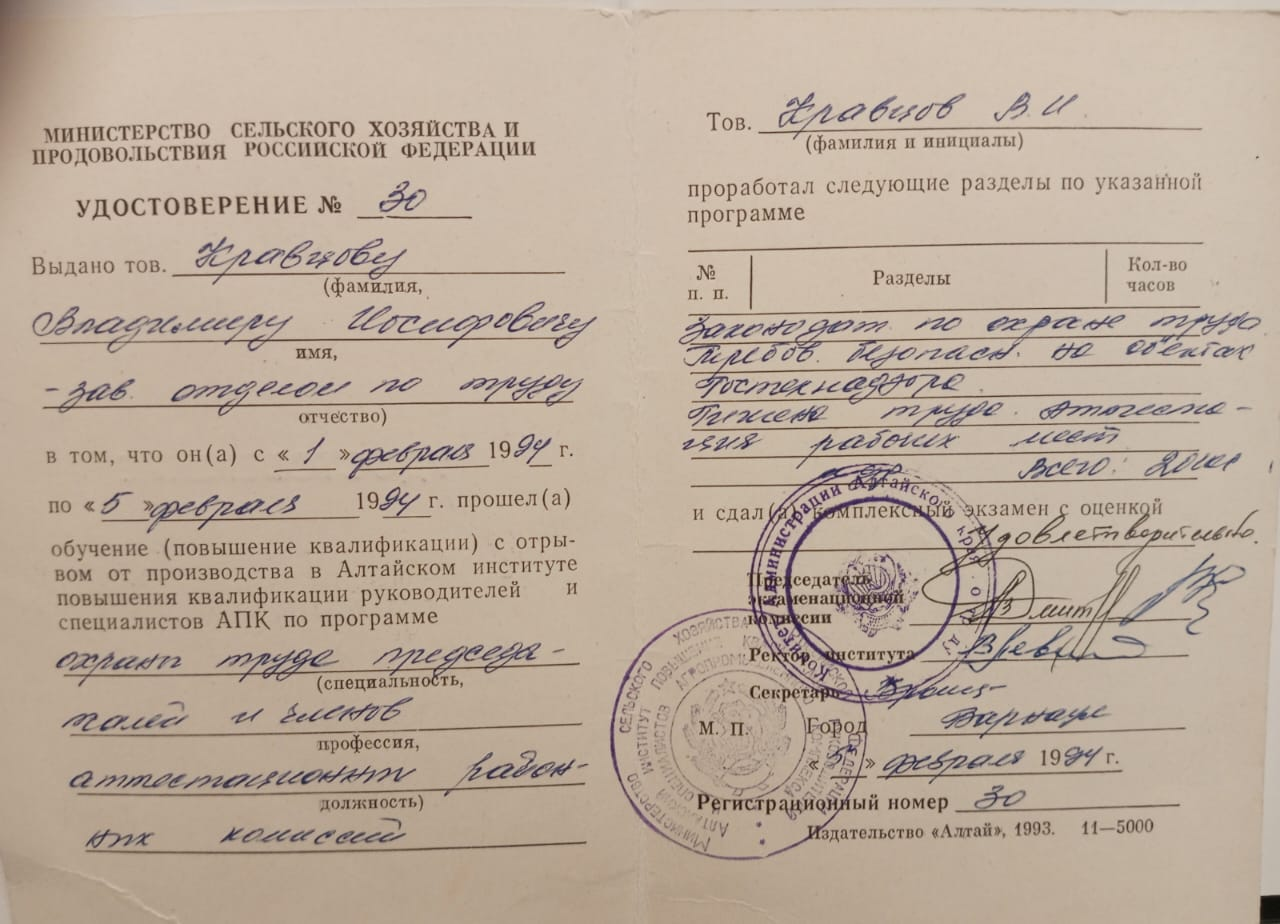 МИНИСТЕРСТВО СЕЛЬСКОГО ХОЗЯЙСТВА И
ПРОДОВОЛЬСТВИЯ РОССИЙСКОЙ ФЕДЕРАЦИИ
УДОСТОВЕРЕНИЕ № 30
Выдано тов. Кравцову
(фамилия,
Владимиру Иосифовичу
имя,
- зав. отделом по труду
отчество)
в том, что он(а) с «1» февраля 1994 г.
по «5» февраля 1994 г. прошел(а)
обучение (повышение квалификации) с отры-
вом от производства в Алтайском институте
повышения квалификации руководителей и
специалистов АПК по программе
охраны труда председа-
(специальность,
телей и членов
профессия,
аттестационных район-
должность)
ных комиссий
Тов. Кравцов В.И.
(фамилия и инициалы)
проработал следующие разделы по указанной
программе
№ п. п. Разделы Кол-во часов
Законодат. по охране труда
Требов. безопасн. на объектах
Гостехнадзора.
Гигиена труда. Аттеста-
ция рабочих мест
Всего:
и сдал(а) комплексный экзамен с оценкой
Удовлетворительно.
Председатель
экзаменационной
комиссии
Ректор института
Секретарь
М. П. Город Барнаул
«5» февраля 1994 г.
Регистрационный номер 30
Издательство «Алтай», 1993. 11—5000
Администрации Алтайского края